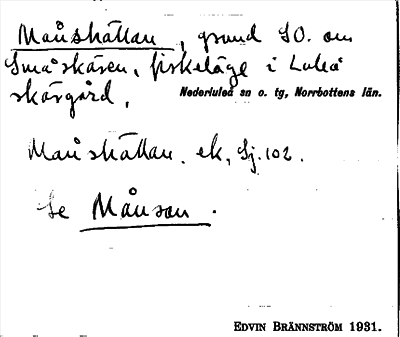 Månskättan, grund SO. om
Småskären, fiskeläge i Luleå
skärgård,
Nederluleå sn o. tg, Norrbottens län.
Manskättan. ek. Sj. 102.
Se Månsan.
EDVIN BRÄNNSTRÖM 1931.